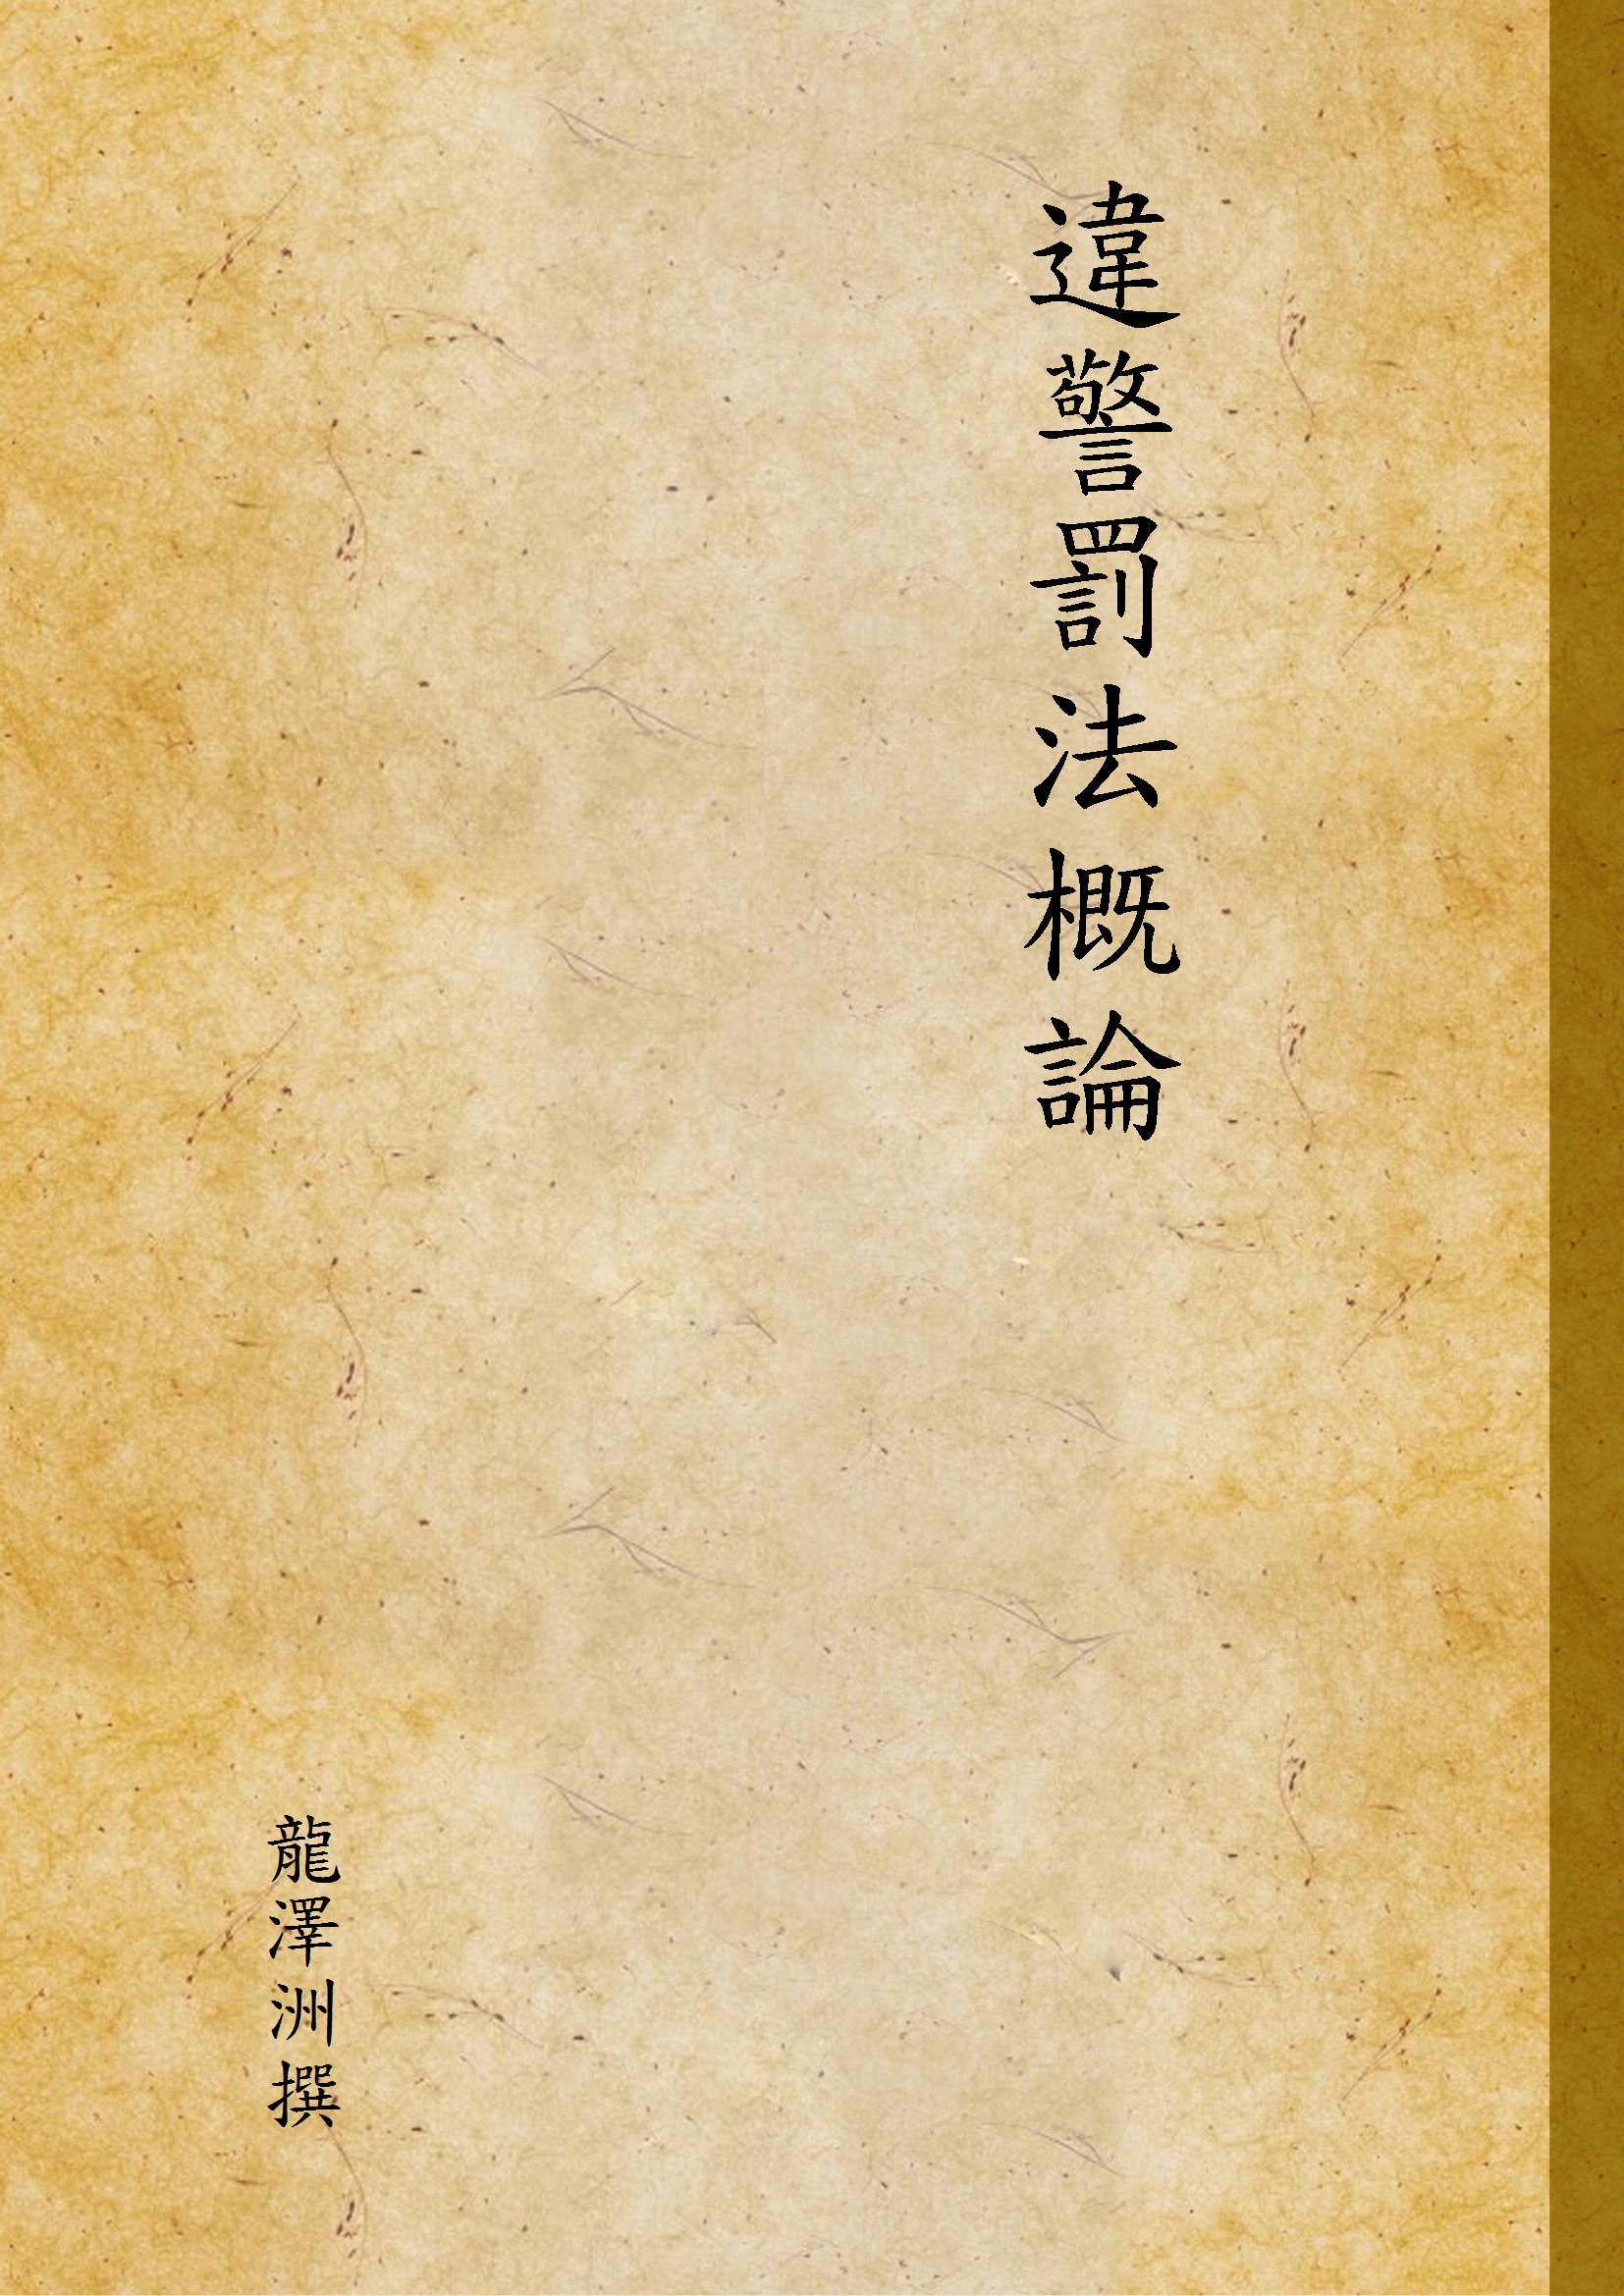 違警罰法概論
龍澤洲撰